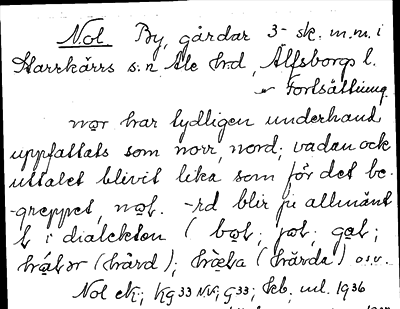 Nol By, gårdar 3-sk. m.m. i
Starrkärrs sn. Ale hd, Älfsborgs l.
Fortsättning
nor har tydligen underhand
uppfattats som norr, nord; vadan ock
uttalet blivit lika som för det be-
greppet, noł. -rd blir ju allmänt
ł i dialekten ( boł; joł; gał;
(hård); (hårda) o.s.v.
Nol ek; Kg 33 NV; G 33; Eb. utl. 1936